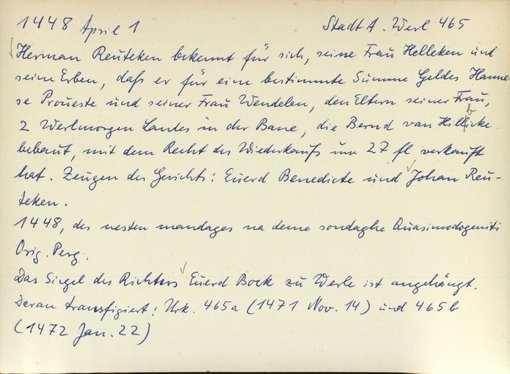 1448 April 1 Stadt A. Werl 465
Herman Reuteken bekennt für sich, seine Frau Helleken und
seine Erben, daß er für eine bestimmte Summe Geldes Hanne
se Proueste und seiner Frau Wendelen, den Eltern seiner Frau,
2 Werlmorgen Landes in der Bane, die Bernd van
bebaut, mit dem Recht des Wiederkaufs um 27 fl verkauft
hat. Zeugen des Gerichts: Euerd Benedicte und Johan Reu-
teken.
1448, des nesten mandages na deme sondaghe Quasimodogeniti
Orig. Perg.
Das Siegel des Richters Euerd Bock zu Werle ist angehängt.
Daran transfigiert: Urk. 465a (1471 Nov. 14) und 465b
(1472 Jan. 22)